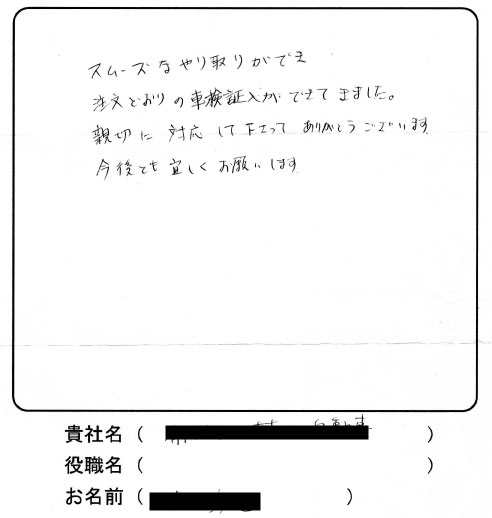 スムーズなやり取りができ
注文どおりの車検証入ができてきました。
親切に対応して下さって ありがとうございます
今後とも宜しくお願いします
貴社名(　　　)
役職名(　　　)
お名前(　　　)